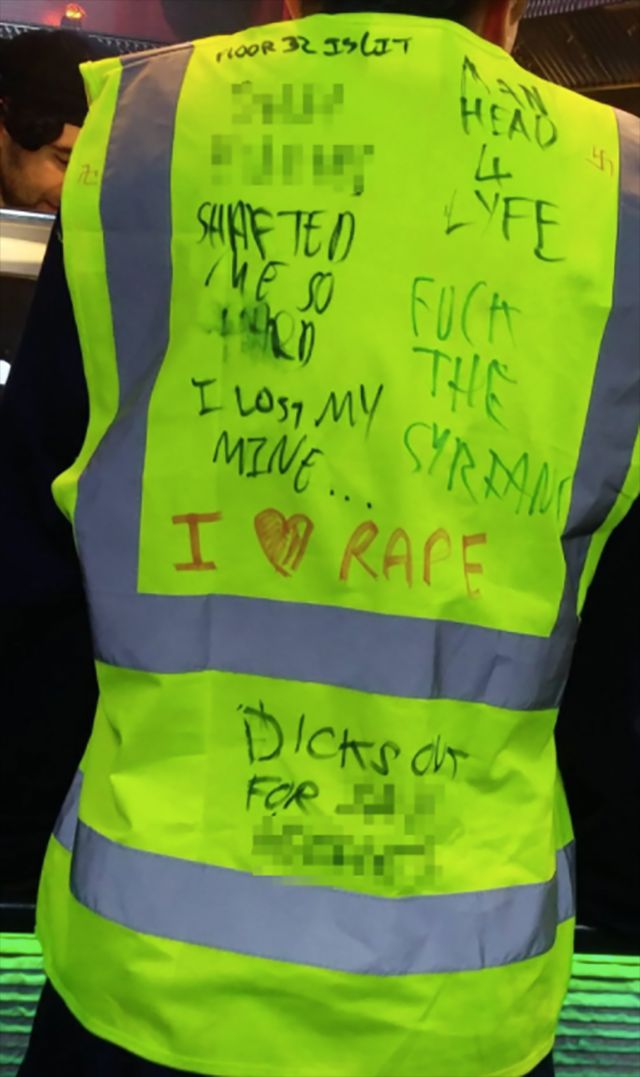 FLOOR 32 IS LIT
MAN
HEAD
4
LYFE
SHAFTED
ME SO
HARD
I LOST MY
MINE...
FUCK
THE
SYRIANS
I ♥ RAPE
DICKS OUT
FOR